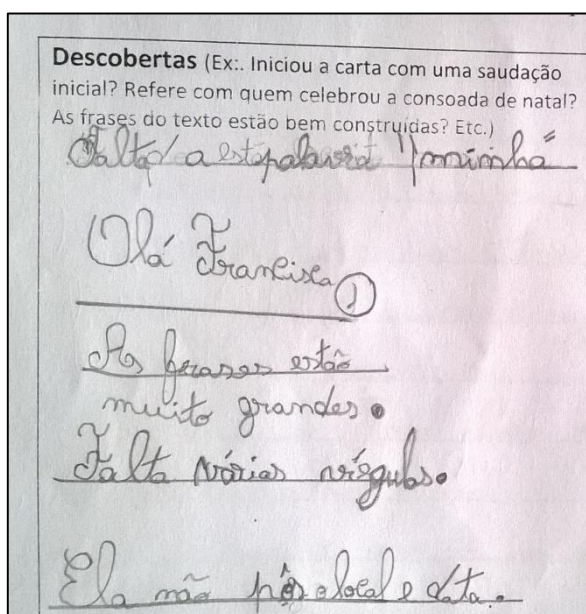 Descobertas (Ex:. Iniciou a carta com uma saudação
inicial? Refere com quem celebrou a consoada de natal?
As frases do texto estão bem construídas? Etc.)
Falta a esta palavra "minha"
Olá Francisca
As frases estão
muito grandes.
Falta várias vírgulas.
Ela não pôs o local e data.